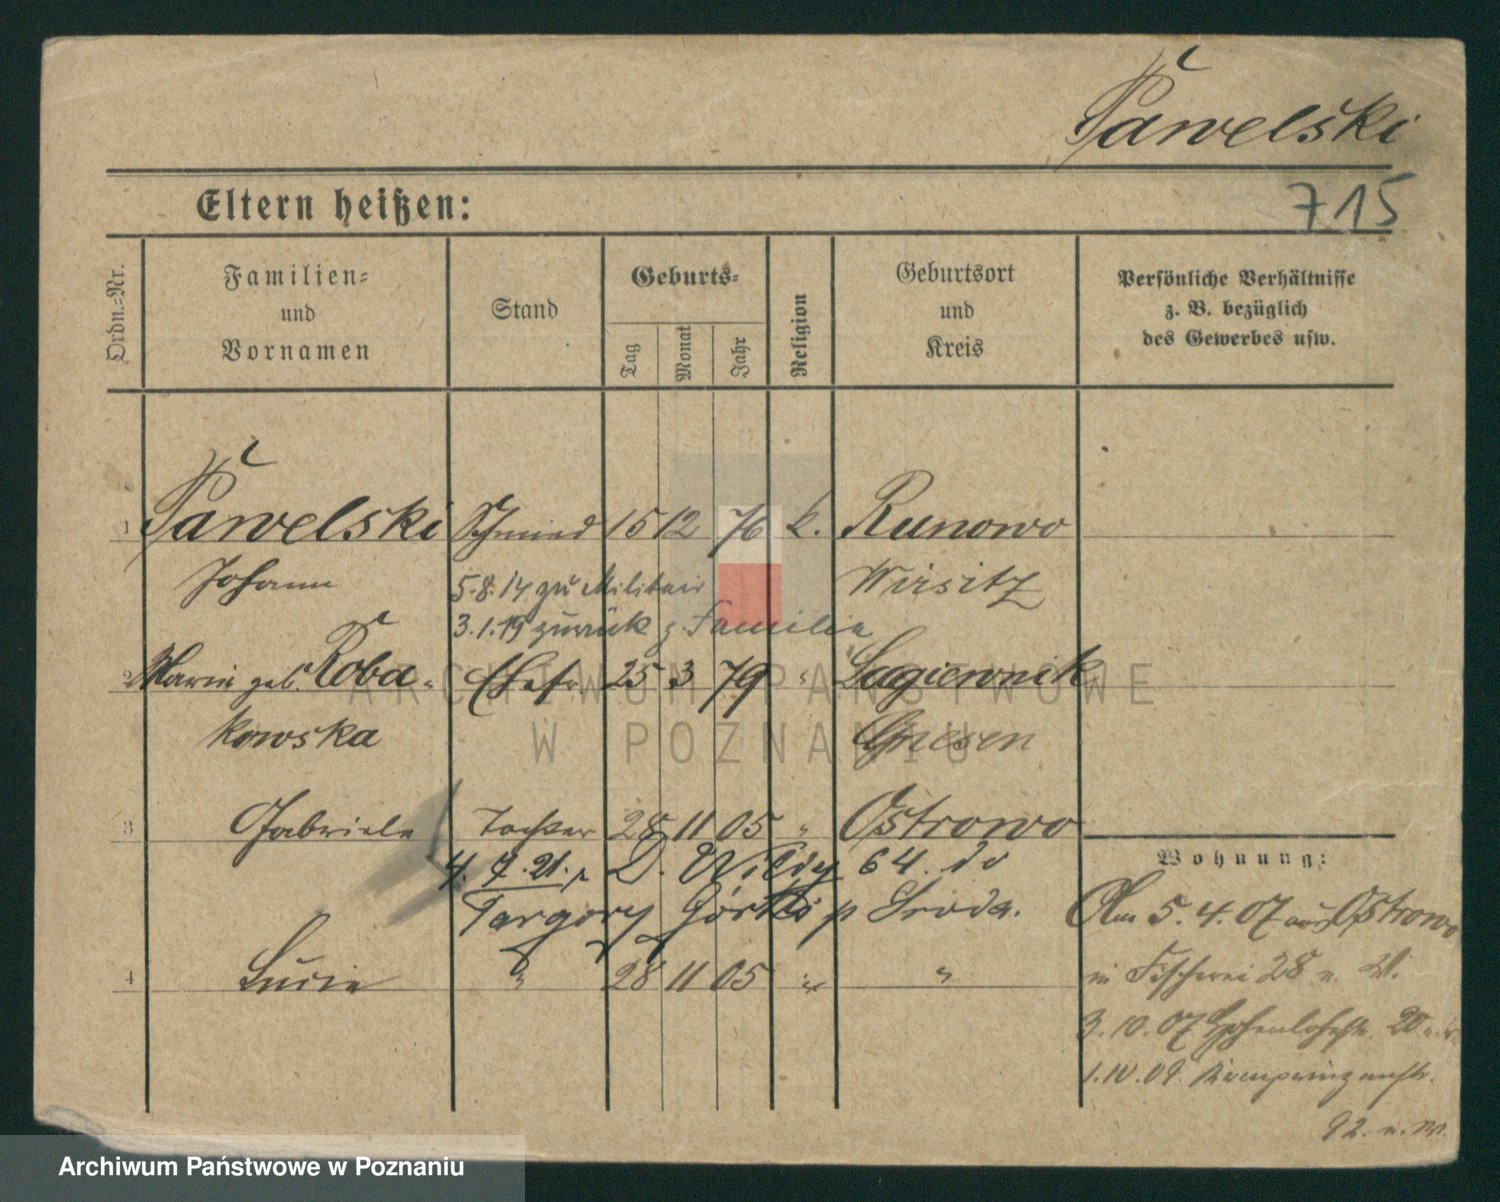 Pawelski
715
Eltern heißen:
Ordn.-Nr.
Familien-
und
Vornamen
Stand
Geburts-
Tag
Monat
Jahr
Religion
Geburtsort
und
Kreis
Persönliche Verhältnisse
z. B. bezüglich
des Gewerbes usw.
1 Pawelski Schmied 15 12 76 k. Runowo
Johann Wirsitz
5.8.14 zu Militair
3.1.19 zurück z. Familie
2 Marie geb. Roba- Ehefr 25 3 79 " Lagiewnik
kowska Gnesen
3 Gabriele Tochter 28 11 05 " Ostrowo
4. 7. 21. D. Wildy 64. do
Targowy Górki p Środa.
4 Lucie " 28 11 05 " "
Wohnung:
Am 5.4.07 aus Ostrowo
in Fischerei 28 u. W.
3.10.07 Hohenlohestr. 20
1.10.09. Kronprinzenstr.
92. u. W.
ARCHIWUM PAŃSTWOWE
W POZNANIU
Archiwum Państwowe w Poznaniu